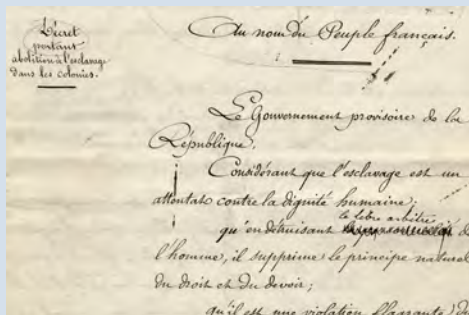 Décret
portant
abolition de l'esclavage
dans les colonies.
Au nom du Peuple français.
Le Gouvernement provisoire de la
République,
Considérant que l'esclavage est un
attentat contre la dignité humaine;
le libre arbitre
qu'en détruisant de
l'homme, il supprime le principe naturel
du droit et du devoir;
qu'il est une violation flagrante d